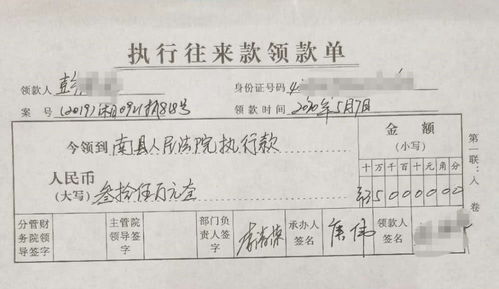 执行往来款领款单
领款人 彭 身份证号码 4
案号 (2019)湘0921执818号 领款时间 2020年5月7日
今领到 南县人民法院执行款 金额
(小写)
十万千百十元角分
人民币
(大写) 叁拾伍万元全 ¥35000000
分管财务院领导签字 主管院领导签字 部门负责人签字 承办人签名 领款人签名
第一联:人卷